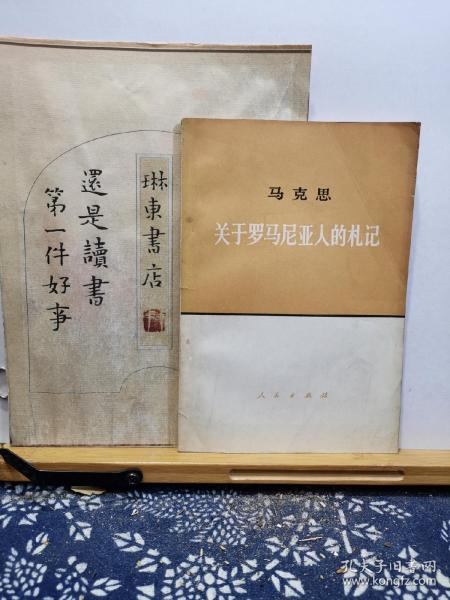 琳東書店
還是讀書
第一件好事
马克思
关于罗马尼亚人的札记
人民出版社
孔夫子旧书网
www.kongfz.com